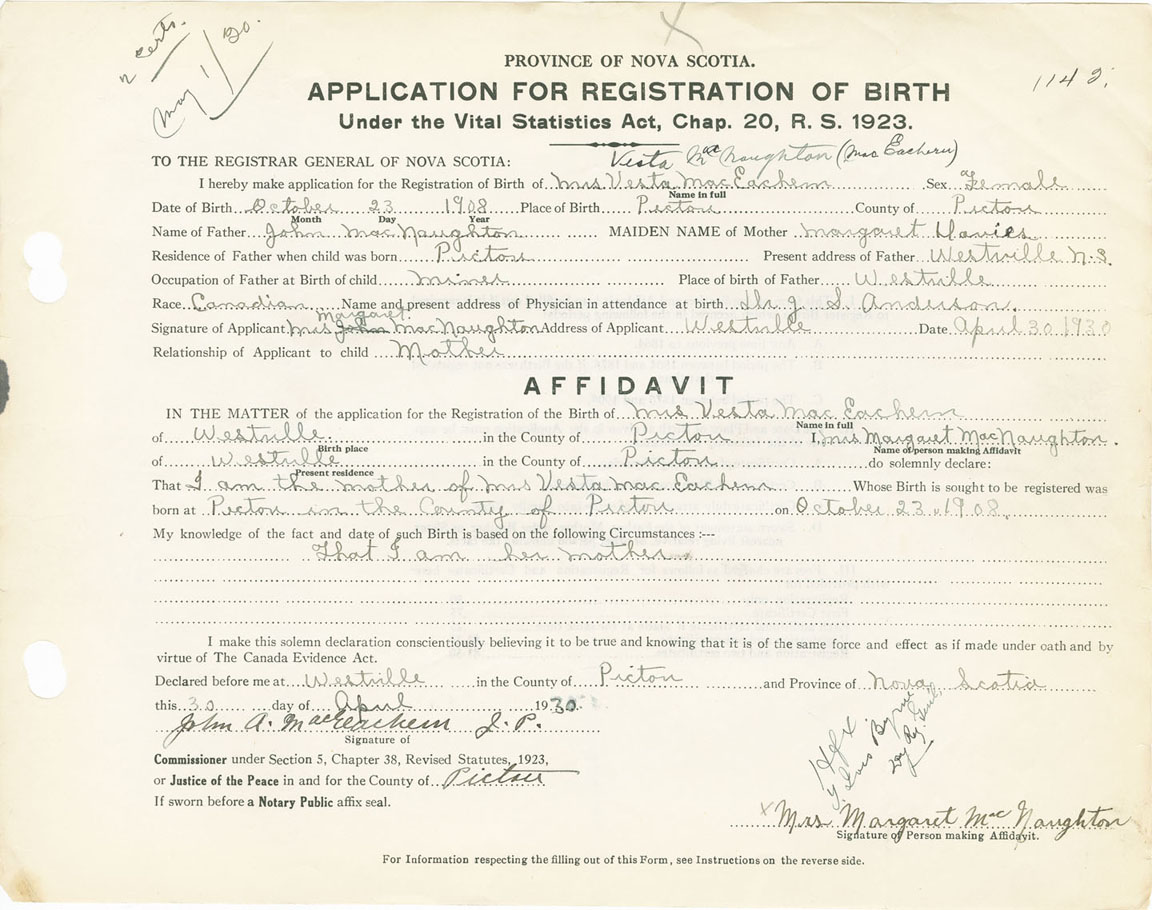 2 certs.
May 1/30.
1142.
PROVINCE OF NOVA SCOTIA.
APPLICATION FOR REGISTRATION OF BIRTH
Under the Vital Statistics Act, Chap. 20, R. S. 1923.
Vesta MacNaughton (MacEachern)
TO THE REGISTRAR GENERAL OF NOVA SCOTIA:
I hereby make application for the Registration of Birth of Mrs Vesta MacEachern Sex Female
Name in full
Date of Birth October 23 1908 Place of Birth Pictou County of Pictou
Month Day Year
Name of Father John MacNaughton MAIDEN NAME of Mother Margaret Davies
Residence of Father when child was born Pictou Present address of Father Westville N.S.
Occupation of Father at Birth of child miner Place of birth of Father Westville
Race Canadian Name and present address of Physician in attendance at birth Dr. J. S. Anderson.
Margaret
Signature of Applicant Mrs John MacNaughton Address of Applicant Westville Date April 30 1930
Relationship of Applicant to child Mother
AFFIDAVIT
IN THE MATTER of the application for the Registration of the Birth of Mrs Vesta Mac Eachern
Name in full
of Westville in the County of Pictou I, Mrs Margaret MacNaughton.
Birth place Name of person making Affidavit
of Westville in the County of Pictou do solemnly declare:
Present residence
That I am the mother of Mrs Vesta Mac Eachern Whose Birth is sought to be registered was
born at Pictou in the County of Pictou on October 23, 1908.
My knowledge of the fact and date of such Birth is based on the following Circumstances :---
That I am her mother
I make this solemn declaration conscientiously believing it to be true and knowing that it is of the same force and effect as if made under oath and by
virtue of The Canada Evidence Act.
Declared before me at Westville in the County of Pictou and Province of Nova Scotia
this 30 day of April 1930
John A. MacEachern J. P.
Signature of
Commissioner under Section 5, Chapter 38, Revised Statutes, 1923,
or Justice of the Peace in and for the County of Pictou
If sworn before a Notary Public affix seal.
Hfx
Mrs Margaret MacNaughton
Signature of Person making Affidavit.
For Information respecting the filling out of this Form, see Instructions on the reverse side.